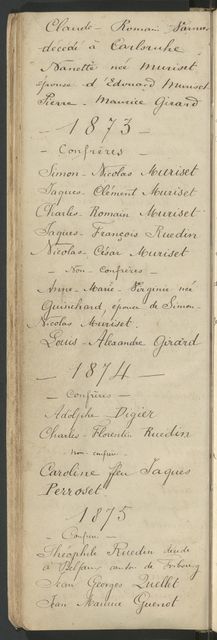 Claude - Romain Varnier
décédé à Carlsruhe
Nanette née Muriset
épouse d'Edouard Muriset
Pierre - Maurice Girard
- 1873 -
- Confrères -
Simon - Nicolas Muriset
Jaques Clément Muriset
Charles Romain Muriset
Jaques François Ruedin
Nicolas César Muriset
- Non Confrères -
Anne - Marie - Virginie née
Guinchard, épouse de Simon-
Nicolas Muriset.
Louis - Alexandre Girard
- 1874 -
- Confrères -
Adolphe Digier
Charles - Florentin Ruedin
Non confrère
Caroline feu Jaques
Perroset
1875
- Confrères -
Théophile Ruedin
à Belfaux canton de Fribourg
Jean Georges Quellet
Jean Maurice Guenot